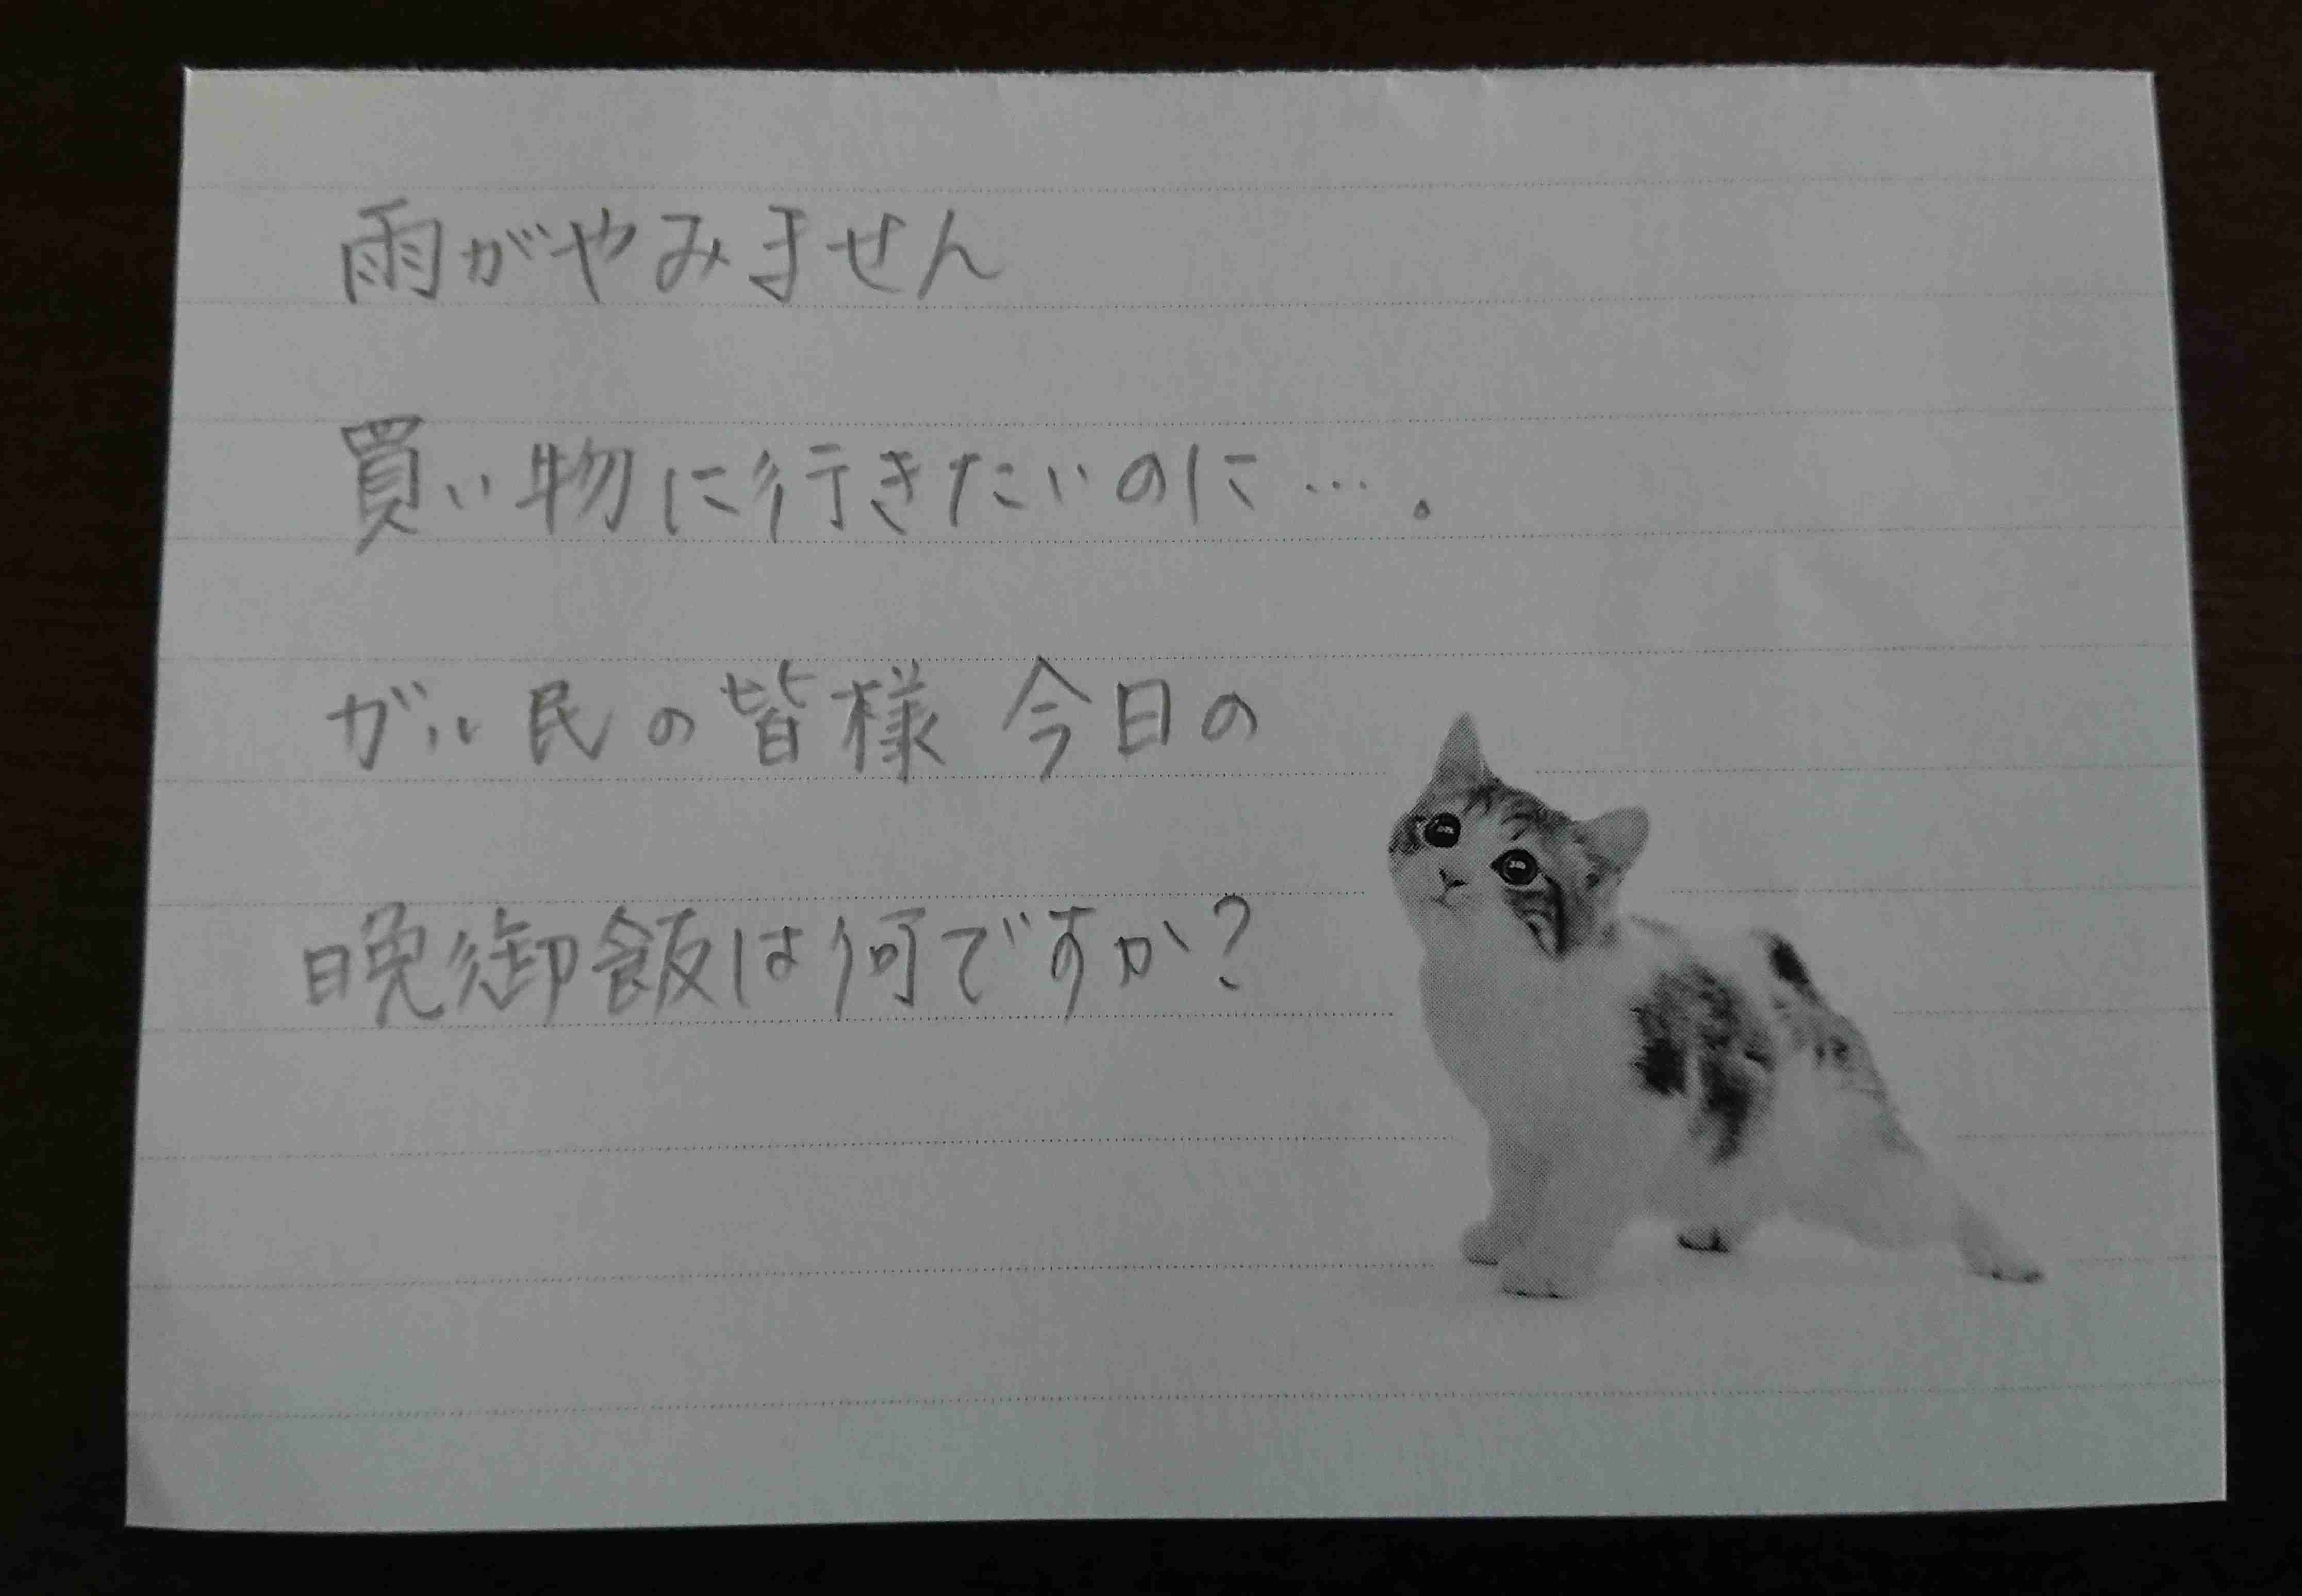 雨がやみません
買い物に行きたいのに…。
がル民の皆様 今日の
晩御飯は何ですか?